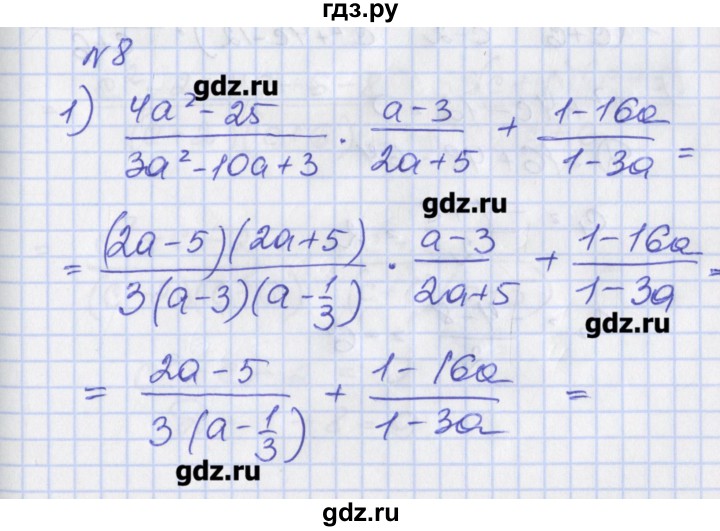 гдз.ру
№8
1) (4a² - 25)/(3a² - 10a + 3) · (a - 3)/(2a + 5) + (1 - 16a)/(1 - 3a) =
gdz.ru
= ((2a - 5)(2a + 5))/(3(a - 3)(a - 1/3)) · (a - 3)/(2a + 5) + (1 - 16a)/(1 - 3a) =
gdz.ru
gdz.ru
= (2a - 5)/(3(a - 1/3)) + (1 - 16a)/(1 - 3a) =
gdz.ru